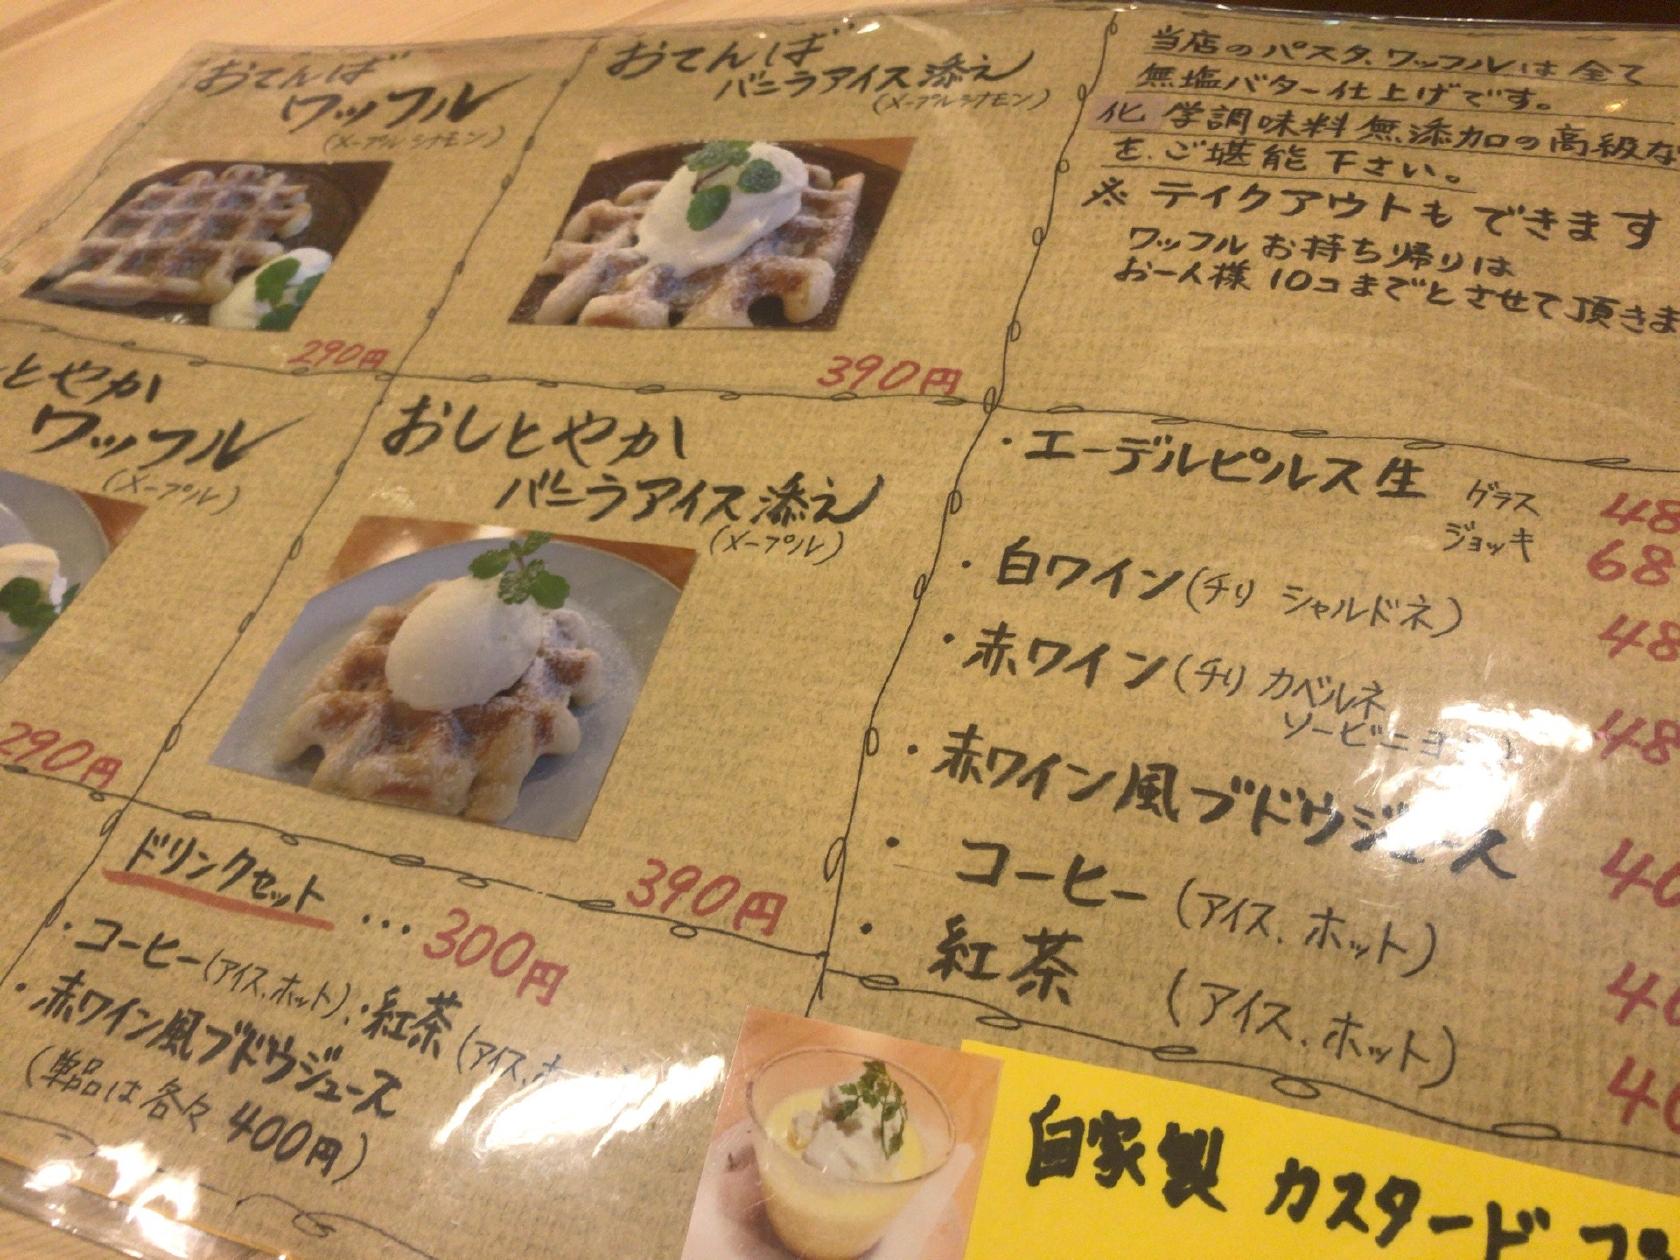 おてんば
ワッフル
(メープルシナモン)
290円
おてんば
バニラアイス添え
(メープルシナモン)
390円
当店のパスタ、ワッフルは全て
無塩バター仕上げです。
化学調味料無添加の高級な
を、ご堪能下さい。
※ テイクアウトもできます
ワッフルお持ち帰りは
お一人様10コまでとさせて頂きま
とやか
ワッフル
(メープル)
290円
おしとやか
バニラアイス添え
(メープル)
390円
・エーデルピルス生 グラス 48
ジョッキ 68
・白ワイン(チリ シャルドネ) 48
・赤ワイン(チリ カベルネ 48
ソービニヨ
・赤ワイン風ブドウジュース 40
・コーヒー(アイス、ホット) 40
・紅茶 (アイス、ホット) 40
ドリンクセット … 300円
・コーヒー(アイス、ホット)、・紅茶(アイス、ホ
・赤ワイン風ブドウジュース
(単品は各々400円)
自家製 カスタード